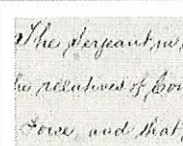 The Serjeant in
relatives of
Force and that